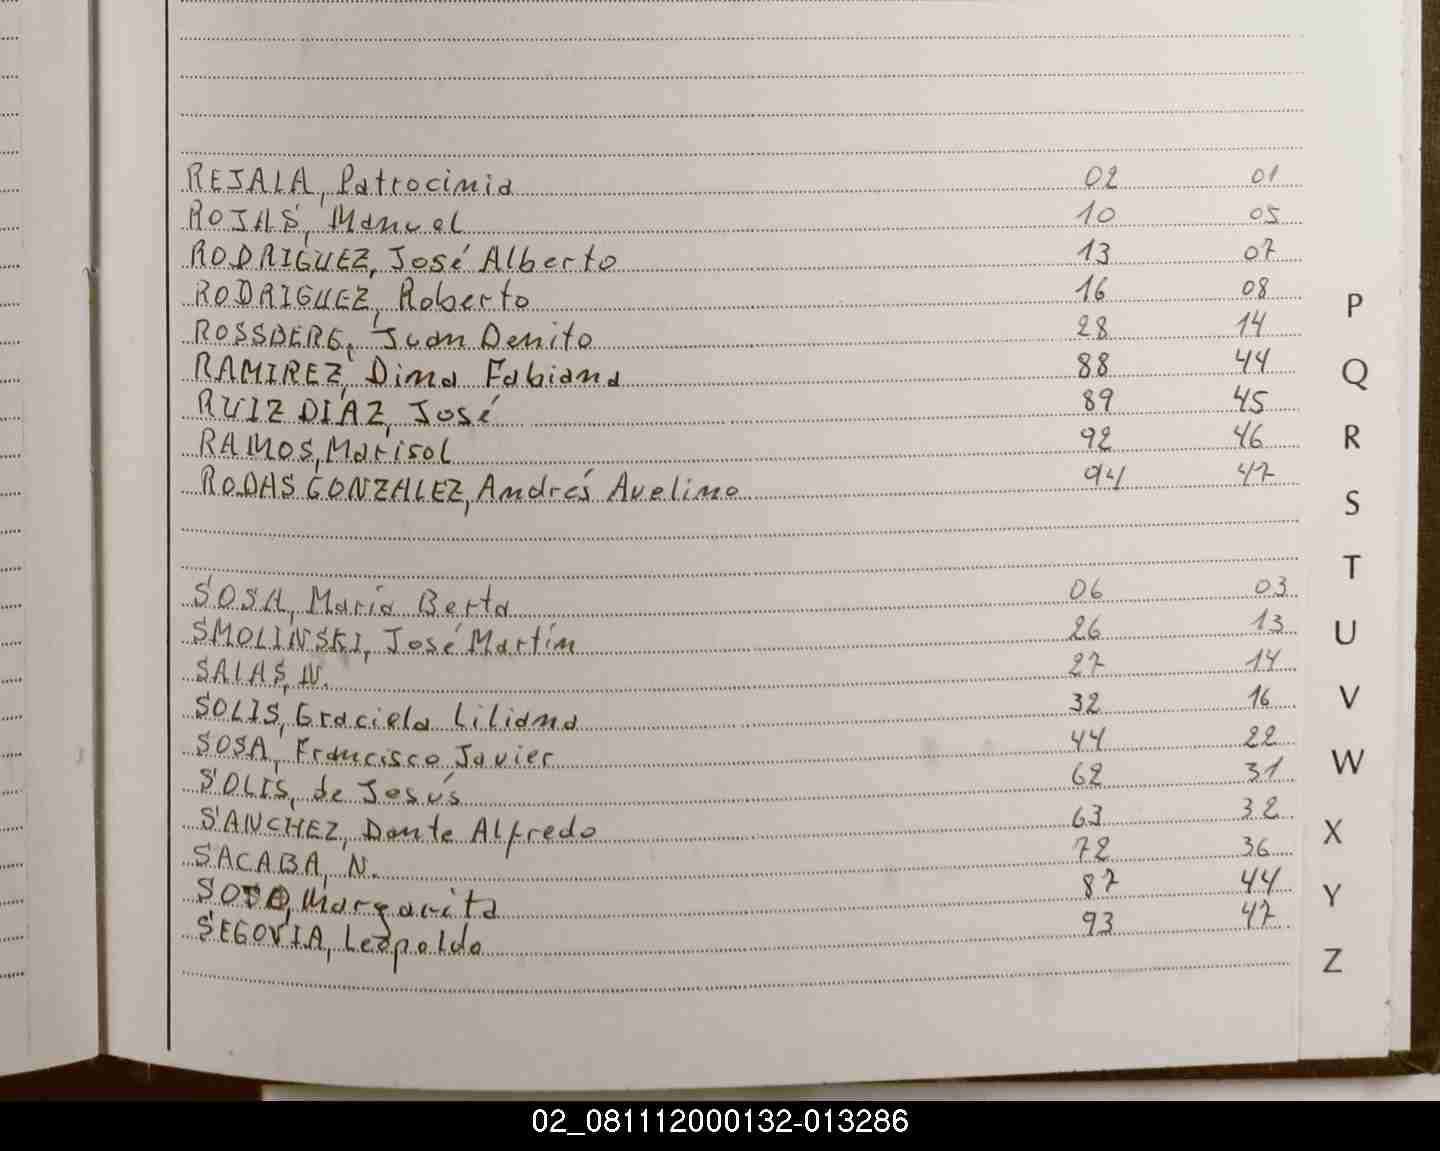 REJALA, Patrocinia 02 01
ROJAS, Manuel 10 05
RODRIGUEZ, José Alberto 13 07
RODRIGUEZ, Roberto 16 08
ROSSBERG, Juan Benito 28 14
RAMIREZ, Dina Fabiana 88 44
RUIZ DÍAZ, José 89 45
RAMOS, Marisol 92 46
RODAS GONZALEZ, Andrés Avelino 94 47
SOSA, María Berta 06 03
SMOLINSKI, José Martín 26 13
SALAS, N. 27 14
SOLIS, Graciela Liliana 32 16
SOSA, Francisco Javier 44 22
SOLIS, de Jesús 62 31
SANCHEZ, Dante Alfredo 63 32
SACABA, N. 72 36
SOTO, Margarita 87 44
SEGOVIA, Leopoldo 93 47
P
Q
R
S
T
U
V
W
X
Y
Z
02_081112000132-013286